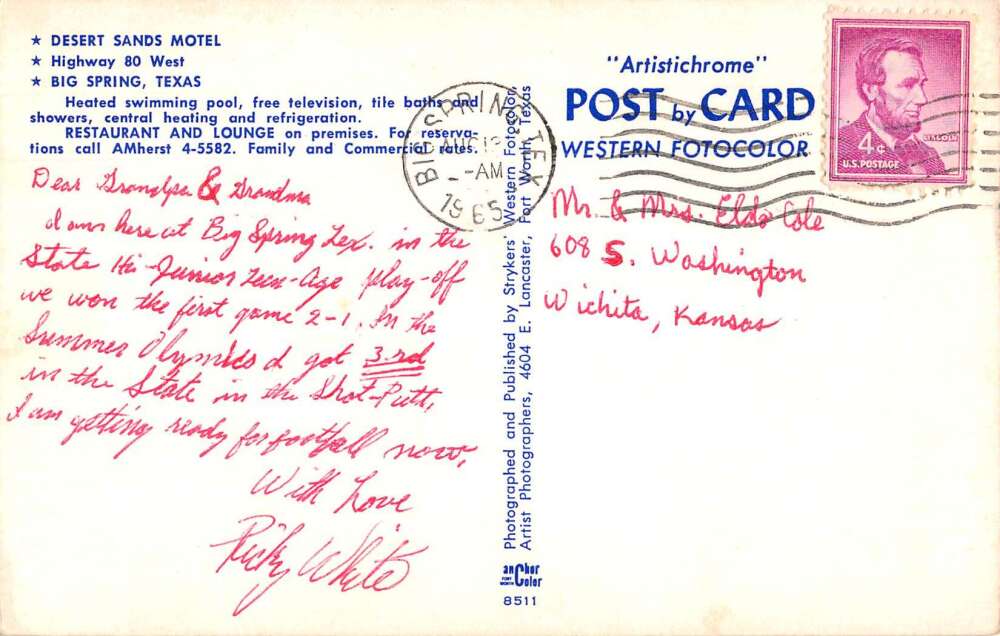 ★ DESERT SANDS MOTEL
★ Highway 80 West
★ BIG SPRING, TEXAS
Heated swimming pool, free television, tile baths and
showers, central heating and refrigeration.
RESTAURANT AND LOUNGE on premises. For reserva-
tions call AMherst 4-5582. Family and Commercial rates.
Dear Grandpa & Grandma
I am here at Big Spring Tex. in the
State Hi-Junior Teen-Age play-off
we won the first game 2-1. In the
Summer Olymics I got 3rd
in the State in the Shot-Putt,
I am getting ready for football now,
With Love
Ricky White
BIG SPRING, TEX
AUG 12
-AM
1965
Photographed and Published by Strykers' Western Fotocolor,
Artist Photographers, 4604 E. Lancaster, Fort Worth, Texas
anChor
FORT WORTH Color
8511
"Artistichrome"
POST by CARD
WESTERN FOTOCOLOR
LINCOLN
4¢
U.S. POSTAGE
Mr. & Mrs. Eldo Cole
608 S. Washington
Wichita, Kansas